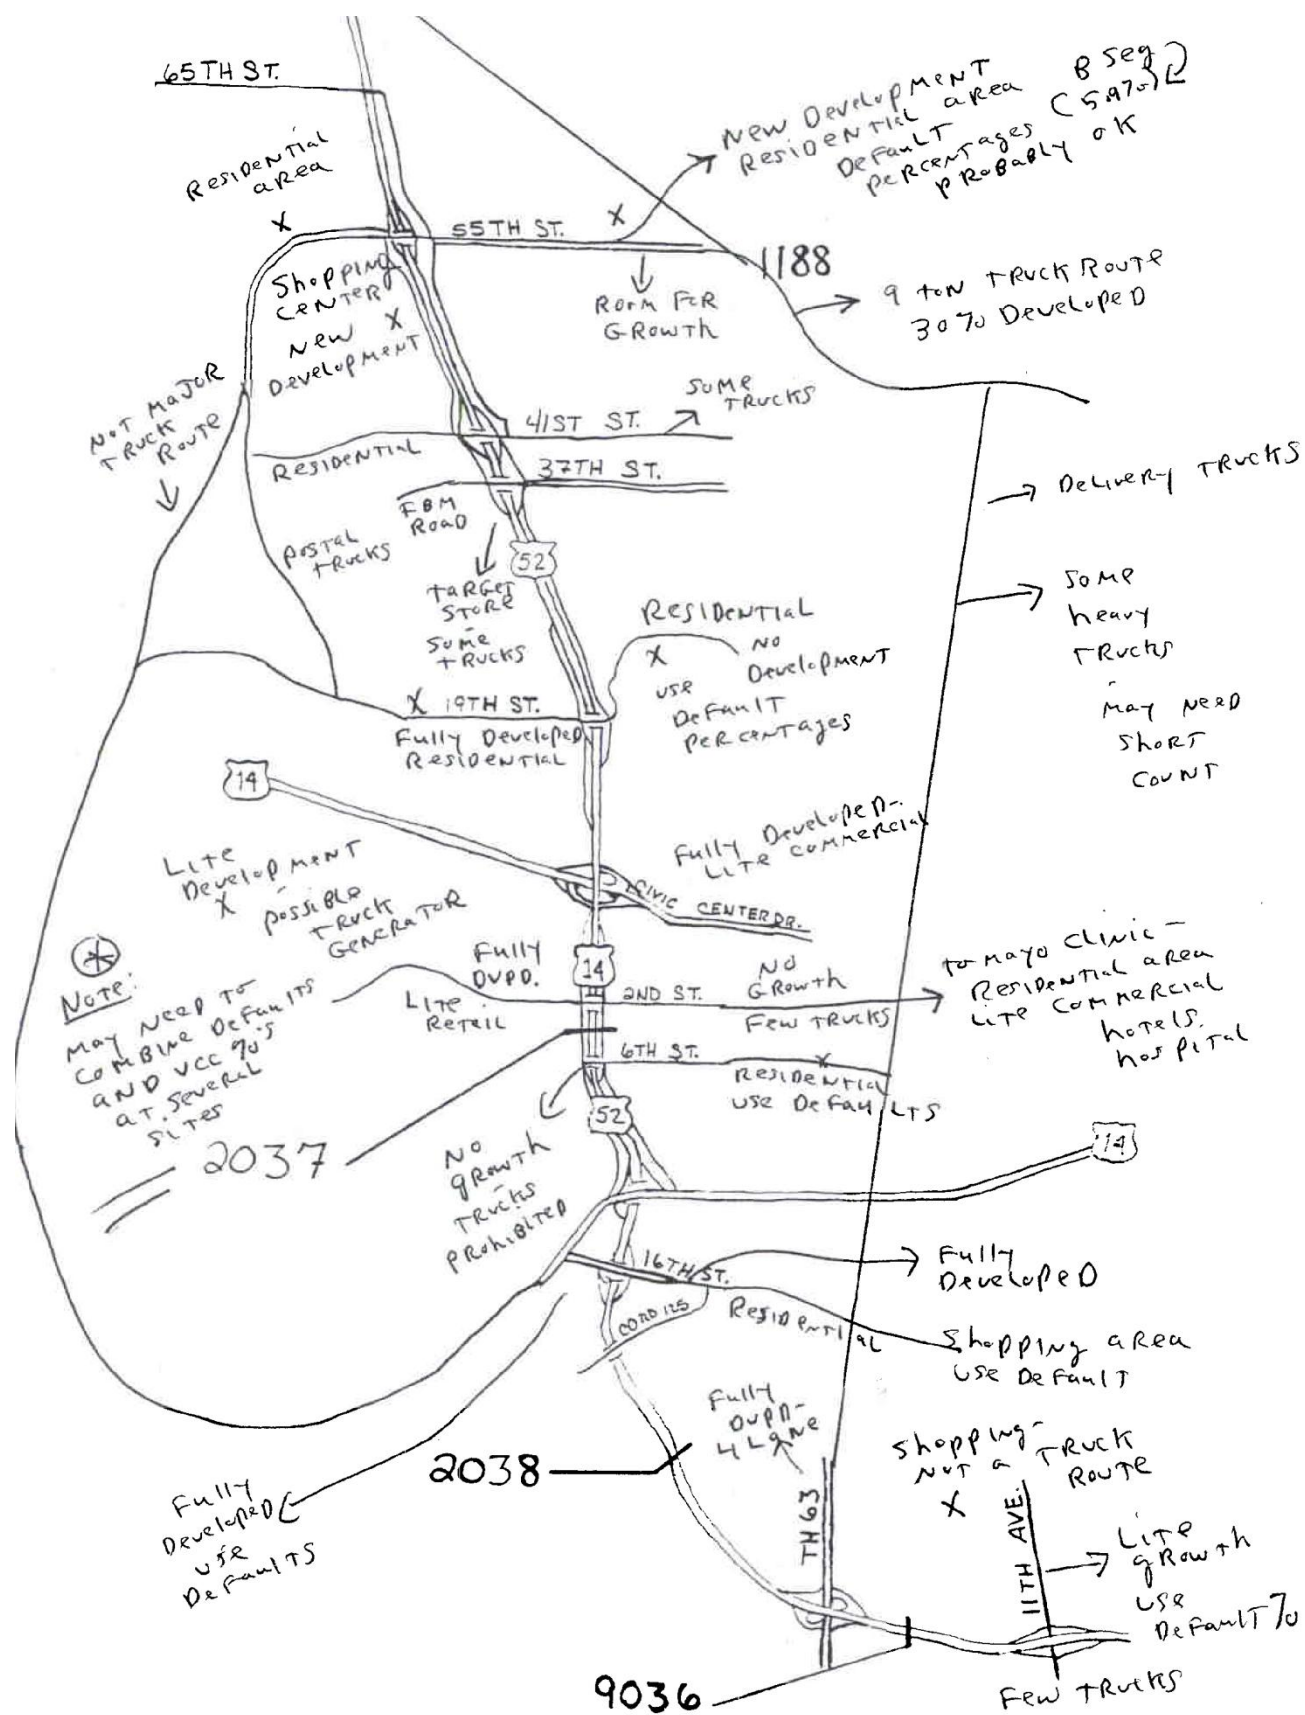 65TH ST.
Residential
area
X
New Development
Residential area
Default
percentages
probably OK
B Seg
(5.9%)
55TH ST.
X
Shopping
Center
New X
Development
Room For
Growth
1188
9 ton Truck Route
30% Developed
Not Major
Truck
Route
Some
Trucks
41ST ST.
Residential
37TH ST.
FBM
Road
Delivery Trucks
Postal
Trucks
52
Target
Store
-
Some
Trucks
Some
heavy
Trucks
-
May Need
Short
Count
Residential
X
No
Development
use
Default
percentages
X 19TH ST.
Fully Developed
Residential
14
Fully Developed-
Lite Commercial
Lite
Development
X
-
possible
Truck
Generator
CIVIC CENTER DR.
Note:
May Need to
combine Defaults
and VCC %'s
at several
sites
Fully
DVPD.
Lite
Retail
14
2ND ST.
No
Growth
Few Trucks
to Mayo Clinic-
Residential area
Lite Commercial
hotels,
hospital
6TH ST.
X
Residential
use Defaults
52
2037
No
growth
-
Trucks
prohibited
14
16TH ST.
Fully
Developed
CO RD 125
Residential
Shopping area
use Default
Fully
DVPD-
4 Lane
2038
Shopping-
Not a Truck
Route
X
Fully
Developed
use
Defaults
TH 63
11TH AVE.
Lite
growth
use
Default %
9036
Few Trucks